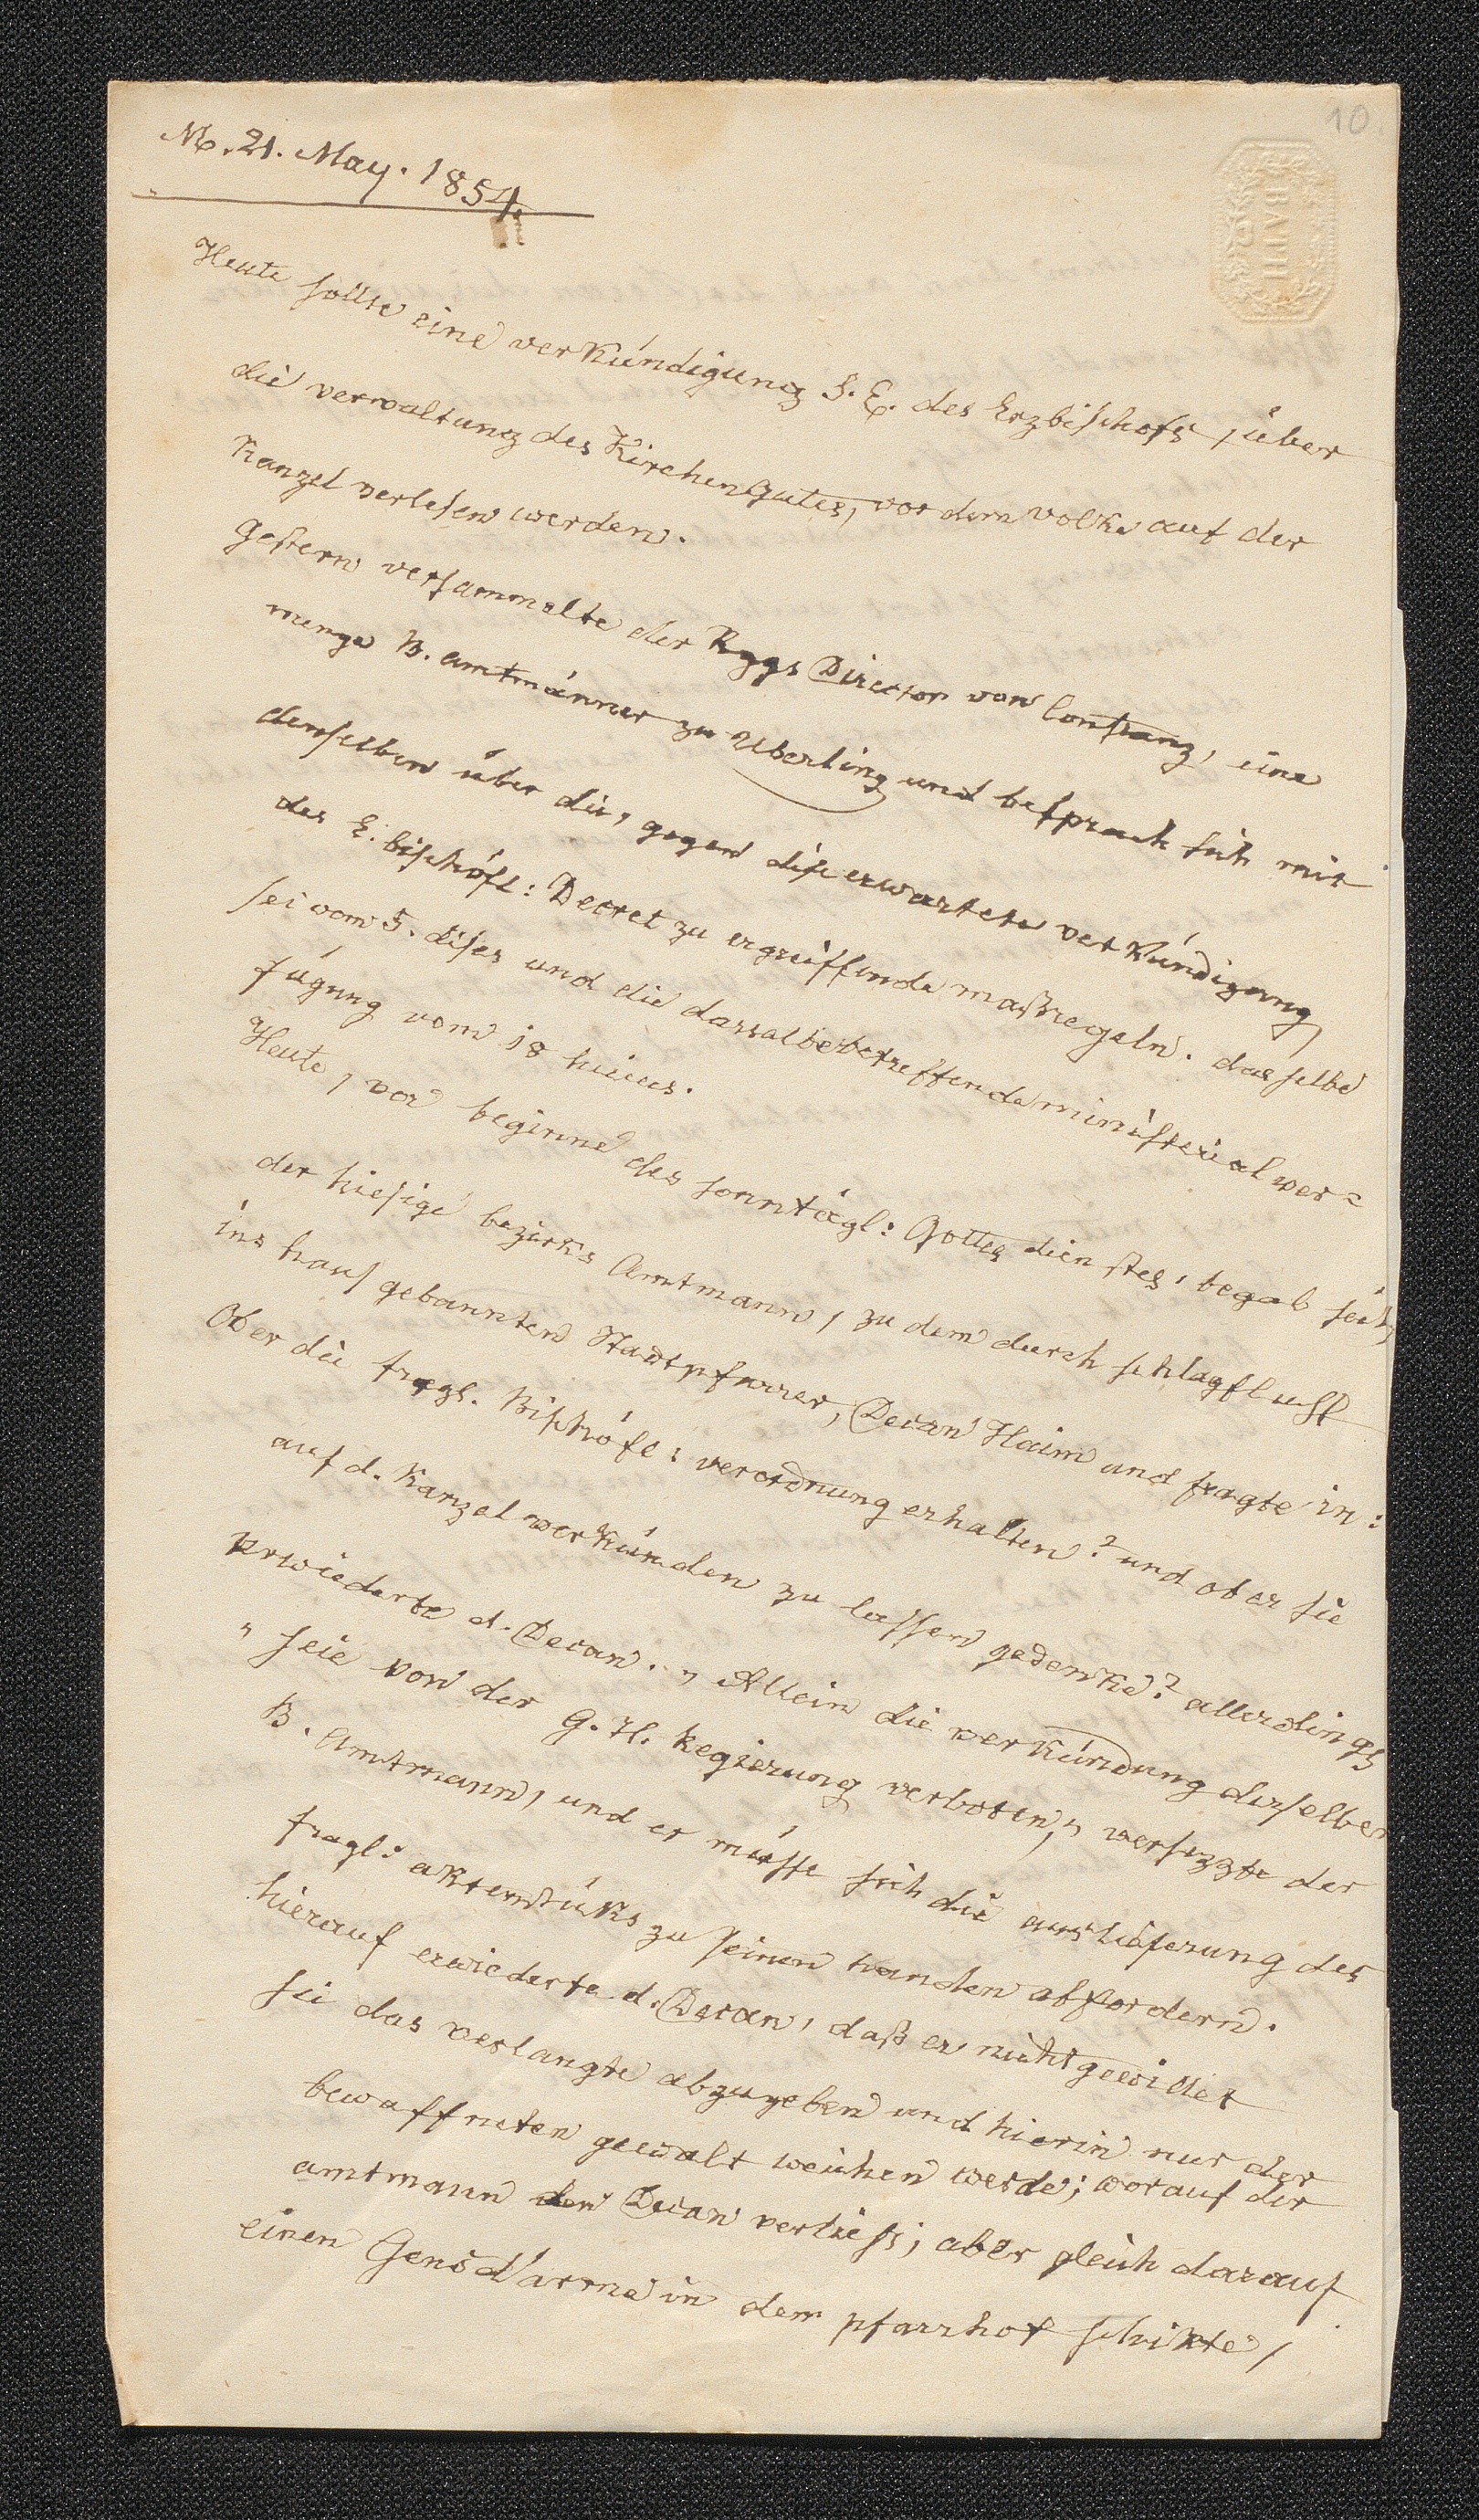 10
BATH
M. 21. May. 1854.
Heute sollte eine verkündigung S. E. des Erzbischofs, über
die verwaltung des KirchenGutes, vor dem volke auf der
Kanzel verlesen werden.
Gestern versammelte der Rggs Director von Constanz, eine
menge B. amtmänner zu Uberling und besprach sich mit
denselben über die, gegen dise erwartete verkündigung
des E. bischöfl: Decret zu ergreiffende maßregeln. dasselbe
sei vom 5. dises und die dasselbe betreffende ministerial ver=
fügung vom 18 huius.
Heute, vor beginne des sonntägl: Gottes dienstes, begab sich,
der hiesige bezirks Amtmann, zu dem durch schlagfluss
ins haus gebannten Stadtpfarrer, Decan Haim und fragte in:
Ob er die fragl. Bischöfl: verordnung erhalten? und ob er sie
auf d. Kanzel verkünden zu lassen gedenke? allerdings
erwiederte d. Decan. „ Allein die verkündung derselben
„ seie von der G. H. Regierung verboten, „ versezzte der
B. Amtmann, und er müsse sich die auslieferung des
fragl: aktenstüks zu seinen handen abfordern.
hierauf erwiederte d. Decan, daß er nicht gewillet
sei das verlangte abzugeben und hierin nur der
bewaffneten gewalt weichen werde; worauf der
amtmann den Decan verliess; aber gleich darauf
einen Gensd'arme in dem pfarrhof schikte,